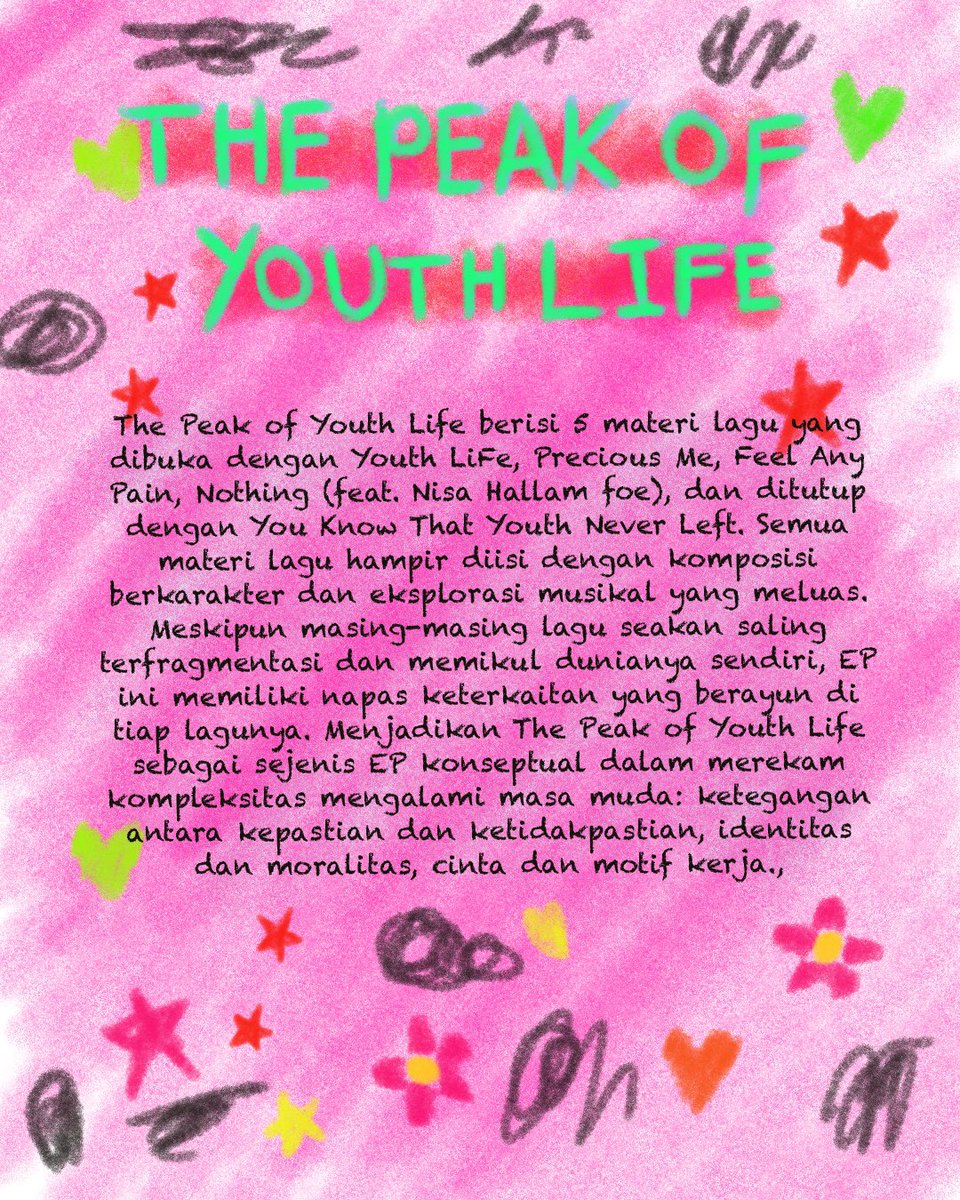 THE PEAK OF
YOUTH LIFE
The Peak of Youth Life berisi 5 materi lagu yang
dibuka dengan Youth LiFe, Precious Me, Feel Any
Pain, Nothing (feat. Nisa Hallam foe), dan ditutup
dengan You Know That Youth Never Left. Semua
materi lagu hampir diisi dengan komposisi
berkarakter dan eksplorasi musikal yang meluas.
Meskipun masing-masing lagu seakan saling
terfragmentasi dan memikul dunianya sendiri, EP
ini memiliki napas keterkaitan yang berayun di
tiap lagunya. Menjadikan The Peak of Youth Life
sebagai sejenis EP konseptual dalam merekam
kompleksitas mengalami masa muda: ketegangan
antara kepastian dan ketidakpastian, identitas
dan moralitas, cinta dan motif kerja.,